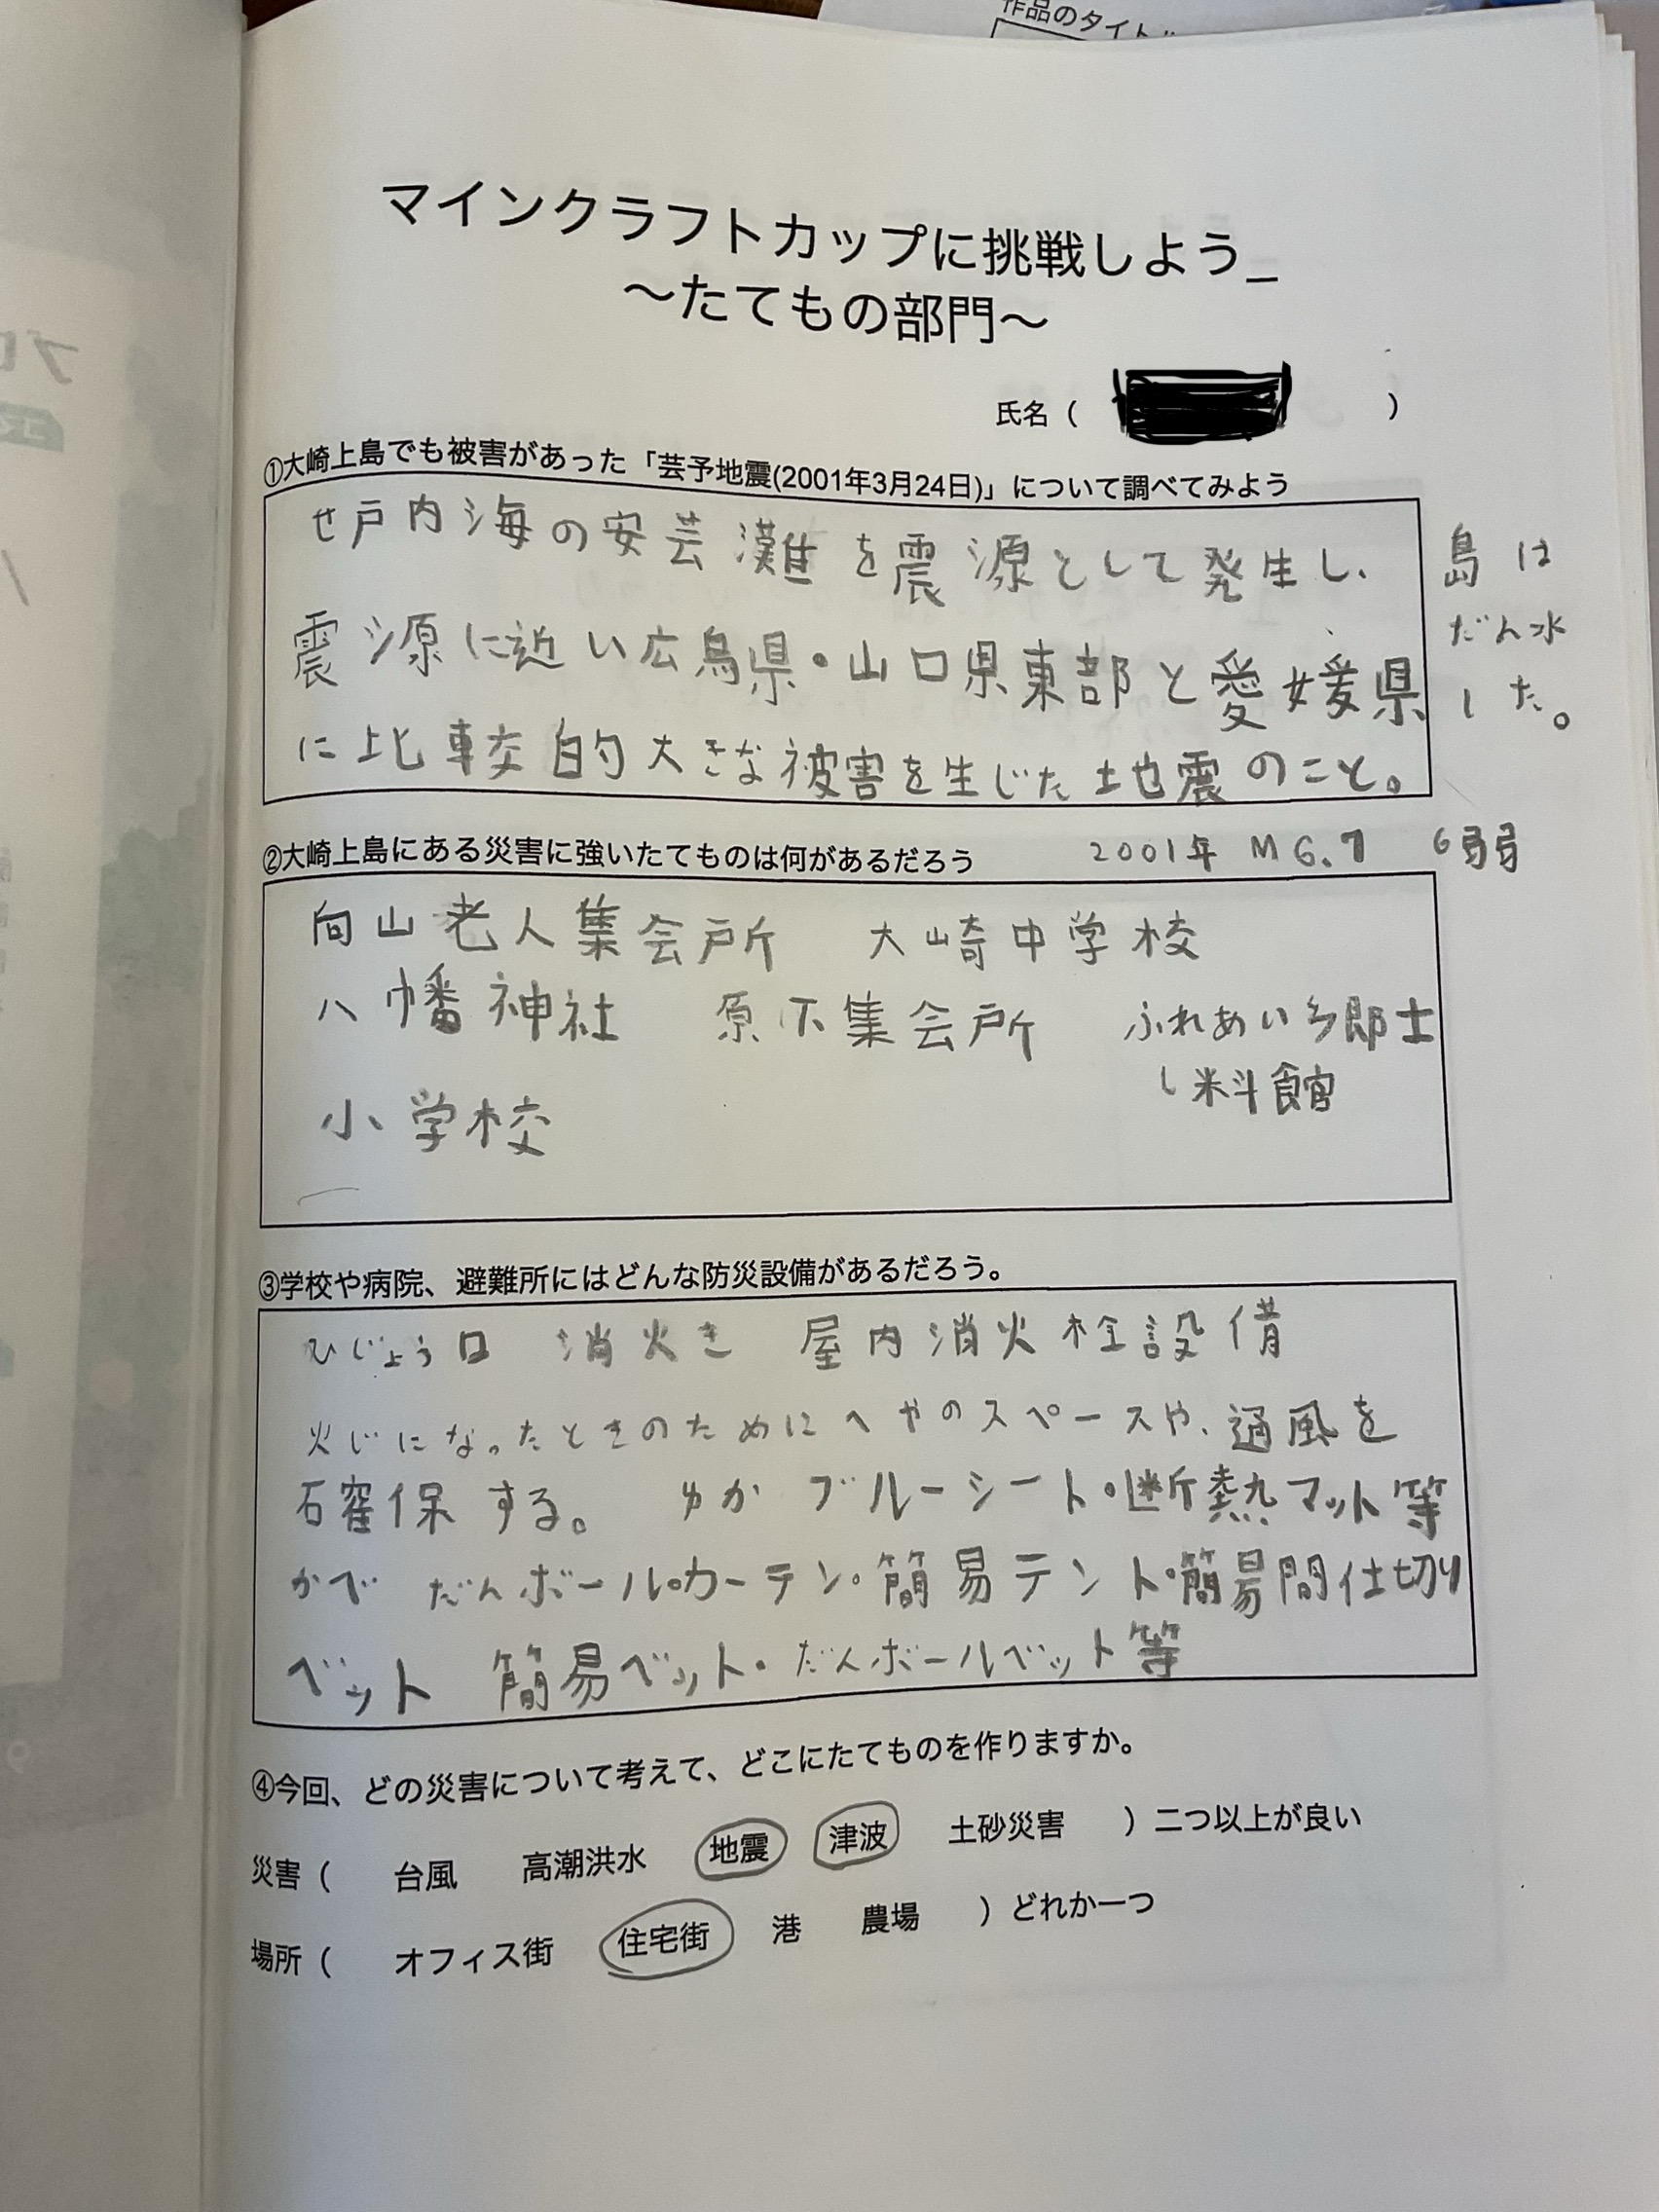 作品のタイトル
マインクラフトカップに挑戦しよう_
～たてもの部門～
氏名（　　　　　）
①大崎上島でも被害があった「芸予地震(2001年3月24日)」について調べてみよう
せ戸内海の安芸灘を震源として発生し、
震源に近い広島県・山口県東部と愛媛県
に比較的大きな被害を生じた地震のこと。
島は
だん水
した。
②大崎上島にある災害に強いたてものは何があるだろう
2001年 M6.7 6弱
向山老人集会所 大崎中学校
八幡神社 原下集会所 ふれあい郷土
し料館
小学校
③学校や病院、避難所にはどんな防災設備があるだろう。
ひじょう口 消火き 屋内消火栓設備
火じになったときのためにへやのスペースや、通風を
確保する。 ゆか ブルーシート・断熱マット等
かべ だんボール・カーテン・簡易テント・簡易間仕切り
ベット 簡易ベット・だんボールベット等
④今回、どの災害について考えて、どこにたてものを作りますか。
災害（ 台風 高潮洪水 地震 津波 土砂災害 ）二つ以上が良い
場所（ オフィス街 住宅街 港 農場 ）どれか一つ